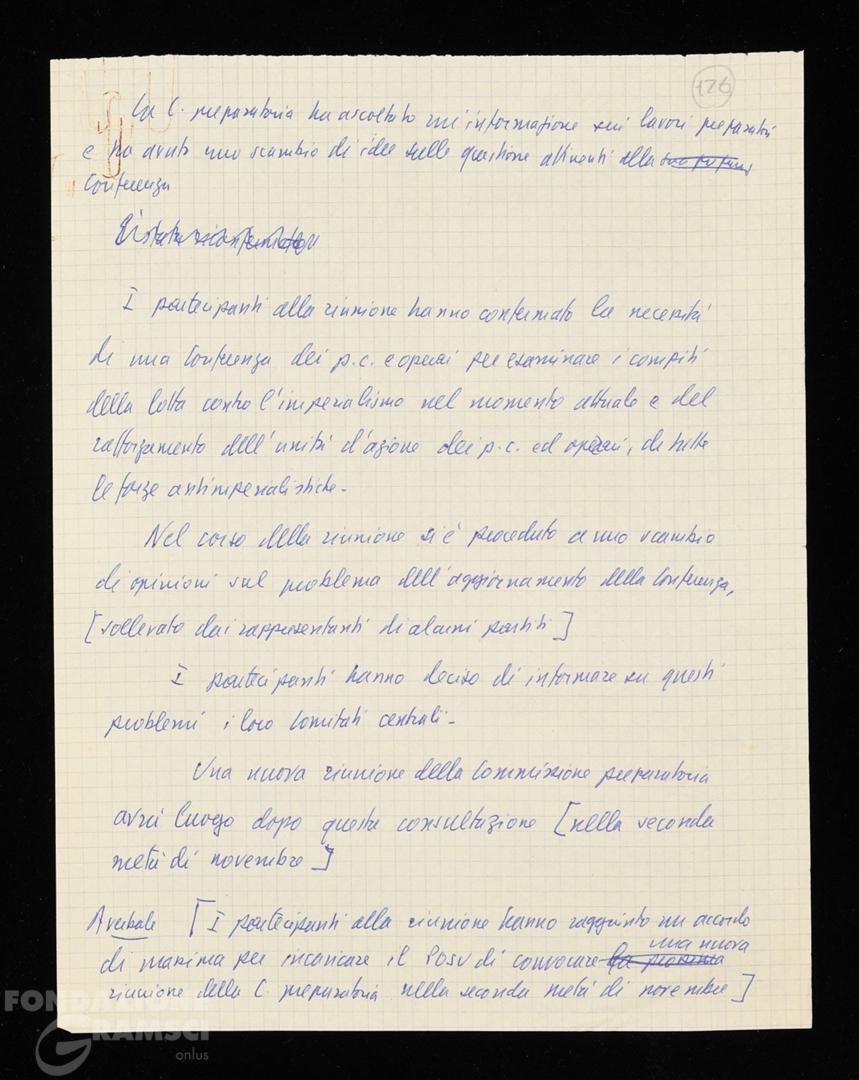 126
La C. preparatoria ha ascoltato un'informazione sui lavori preparatori
e ha avuto uno scambio di idee sulle questione attinenti alla
Conferenza
I partecipanti alla riunione hanno confermato la necessità
di una Conferenza dei p.c. e operai per esaminare i compiti
della lotta contro l'imperialismo nel momento attuale e del
rafforzamento dell'unità d'azione dei p.c. ed operai, di tutte
le forze antimperialistiche.
Nel corso della riunione si è proceduto a uno scambio
di opinioni sul problema dell'aggiornamento della Conferenza,
[sollevato dai rappresentanti di alcuni partiti]
I partecipanti hanno deciso di informare su questi
problemi i loro Comitati centrali.
Una nuova riunione della Commissione preparatoria
avrà luogo dopo questa consultazione [nella seconda
metà di novembre]
A verbale [I partecipanti alla riunione hanno raggiunto un accordo
di massima per incaricare il Posu di convocare la prossima una nuova
riunione della C. preparatoria nella seconda metà di novembre]
FONDAZIONE
GRAMSCI
onlus